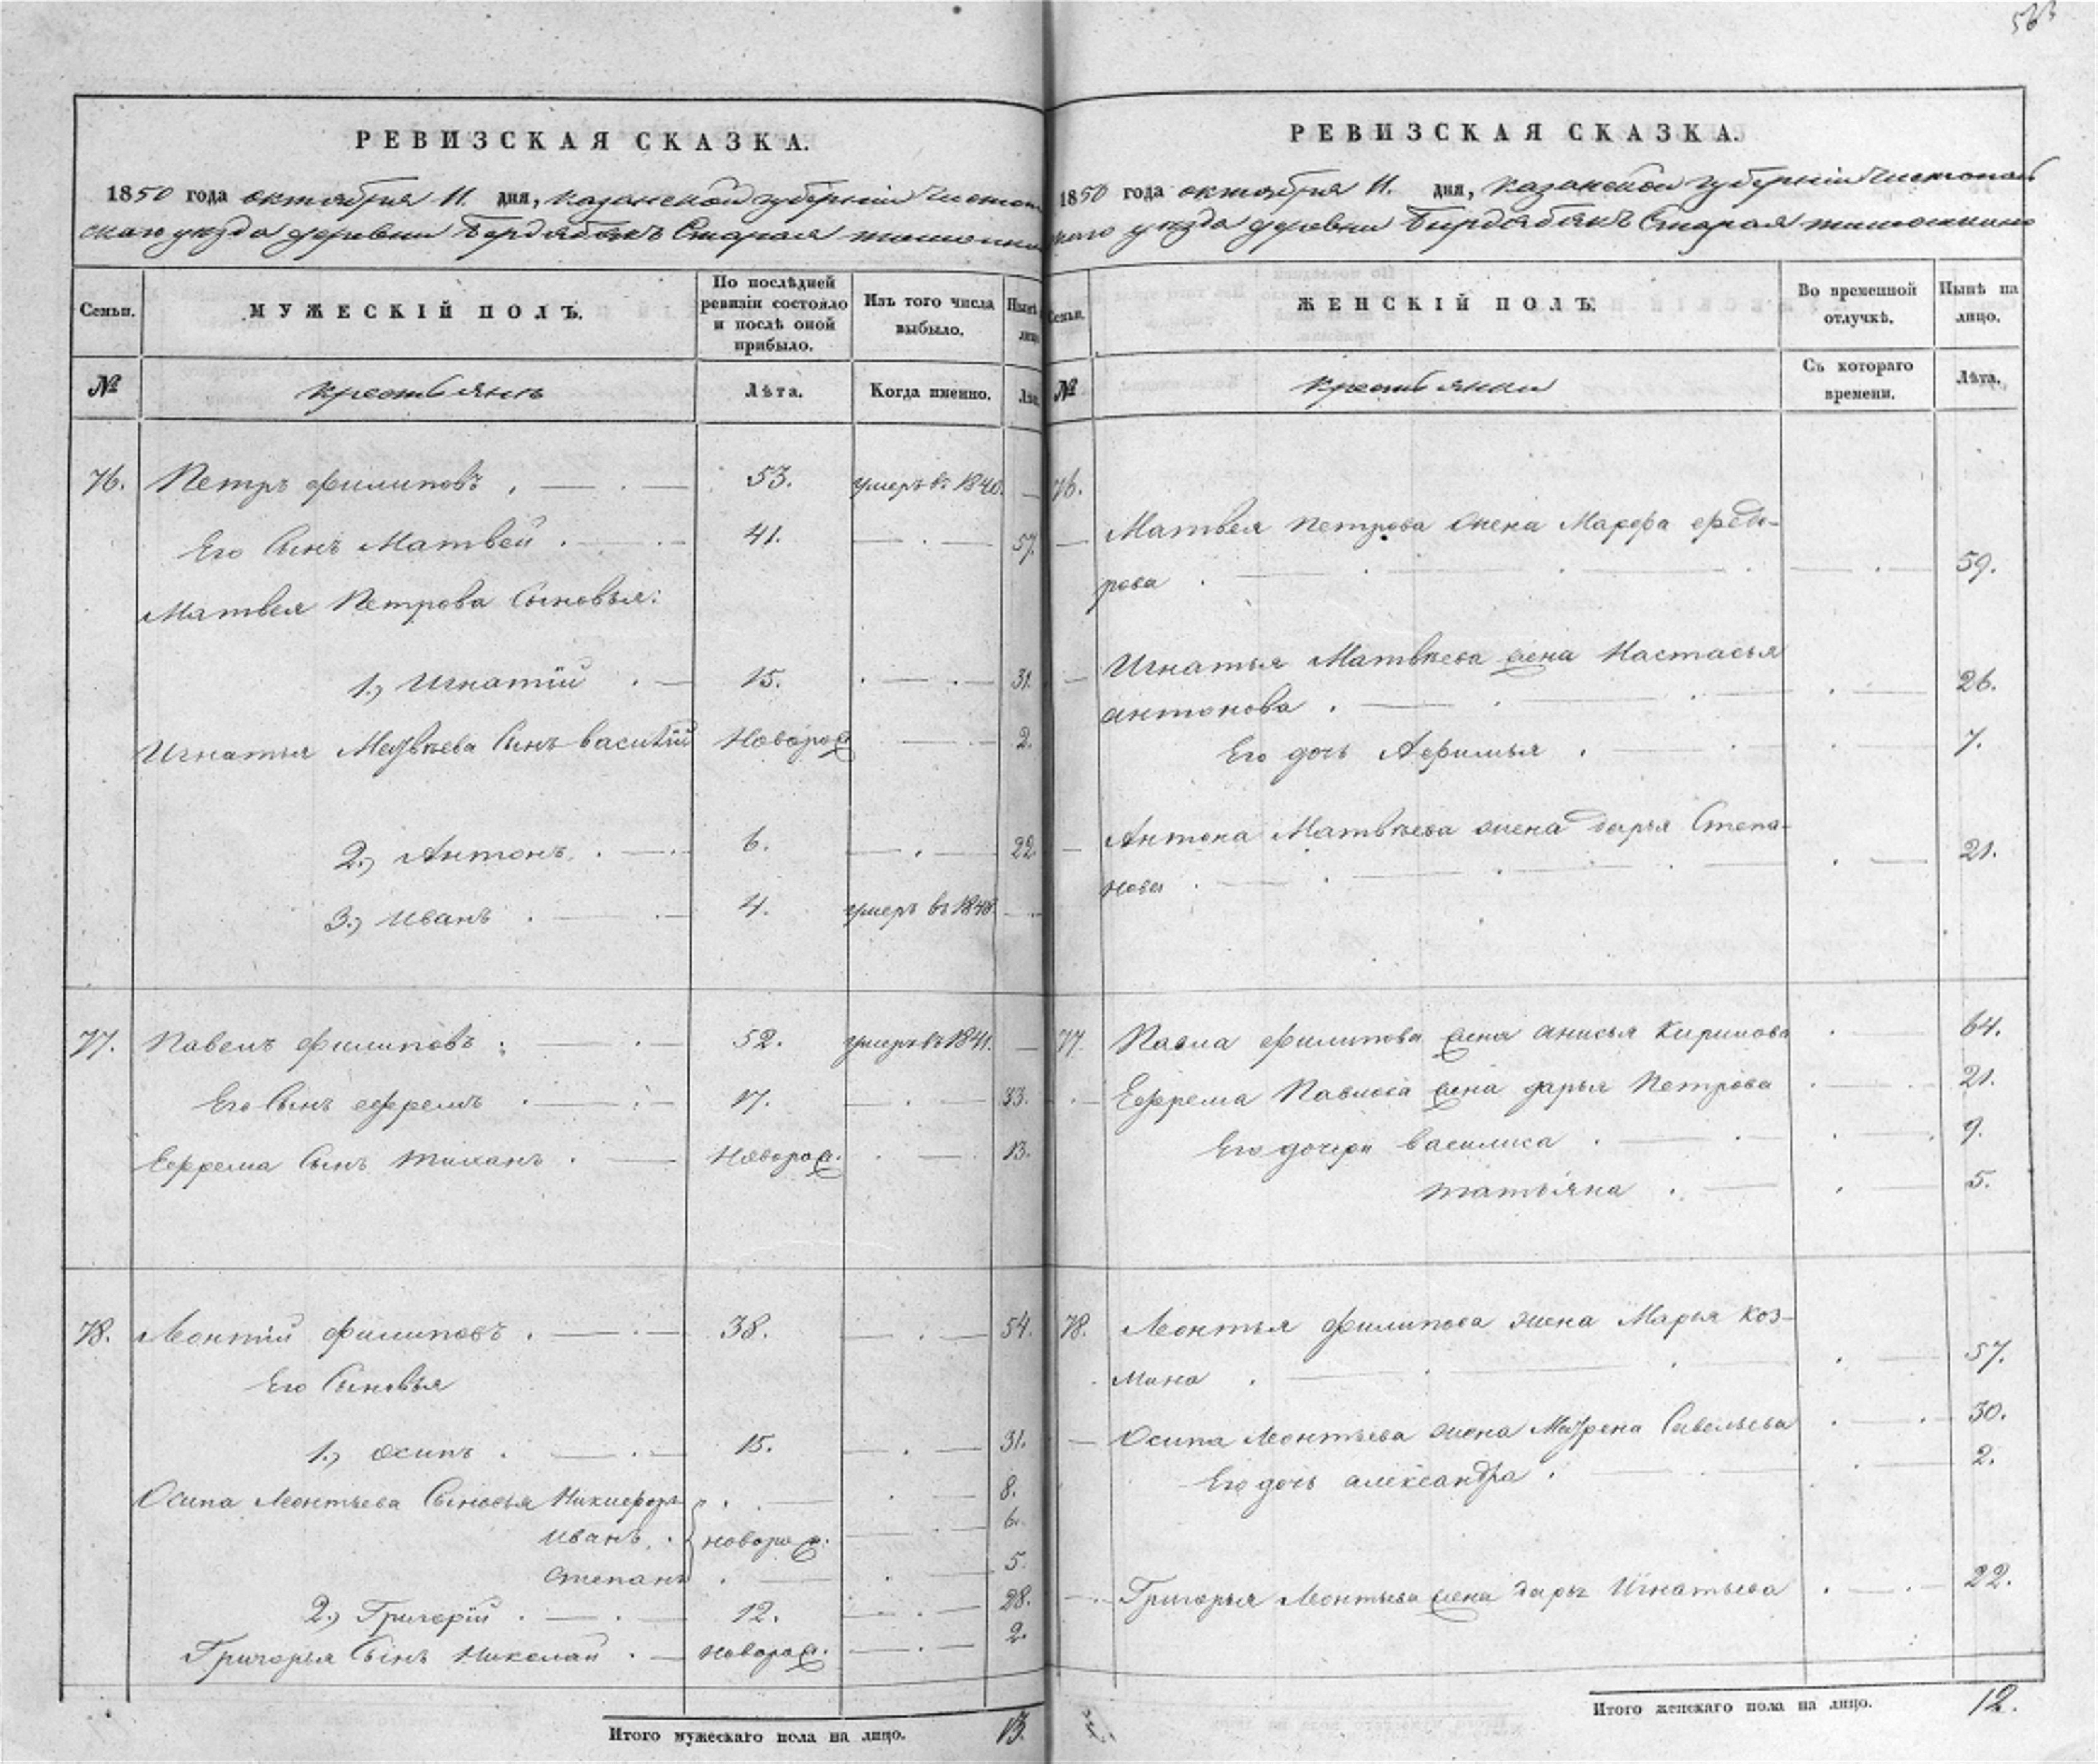 РЕВИЗСКАЯ СКАЗКА.
1850 года октября 11. дня, Казанской губернiи Чистопол
скаго уѣзда деревни Бердябякъ Старая
Семьи.
МУЖЕСКIЙ ПОЛЪ.
По послѣдней
ревизiи состояло
и послѣ оной
прибыло.
Изъ того числа
выбыло.
Нынѣ
лицо
№
крестьянъ
Лѣта.
Когда именно.
76. Петръ Филиповъ 53. умеръ въ 1840.
Его Сынъ Матвей 41. 57.
Матвея Петрова Сыновья:
1.) Игнатiй 15. 31.
Игнатья Матвѣева Сынъ Василiй Новорож 2.
2.) Антонъ 6. 22.
3.) Иванъ 4. умеръ въ 1848.
77. Павелъ Филиповъ 52. умеръ въ 1841.
Его Сынъ Ефремъ 17. 33.
Ефрема Сынъ Новорож. 13.
78. Леонтiй Филиповъ 38. 54.
Его Сыновья
1.) Осипъ 15. 31.
Осипа Леонтьева Сыновья Никифоръ 8.
Иванъ новорож. 6.
Степанъ 5.
2.) Григорiй 12. 28.
Григорья Сынъ Николай новорож. 2.
Итого мужескаго пола на лицо. 13.
РЕВИЗСКАЯ СКАЗКА.
1850 года октября 11. дня, Казанской губернiи Чистополь
скаго уѣзда деревни Бирдябякъ Старая
Семьи.
ЖЕНСКIЙ ПОЛЪ.
Во временной
отлучкѣ.
Нынѣ на
лицо.
№
крестьянки
Съ котораго
времени.
Лѣта.
76.
Матвея Петрова жена Марфа Федо-
рова 59.
Игнатья Матвѣева жена Настасья
Антонова 26.
Его дочь Афимья 7.
Антона Матвѣева жена Дарья Степа-
нова 21.
77. Павла Филипова жена Анисья Кирилова 64.
Ефрема Павлова жена Дарья Петрова 21.
Его дочери Василиса 9.
Татьяна 5.
78. Леонтья Филипова жена Марья Коз-
мина 57.
Осипа Леонтьева жена Матрена Савельева 30.
Его дочь Александра 2.
Григорья Леонтьева жена Дарья Игнатьева 22.
Итого женскаго пола на лицо. 12.